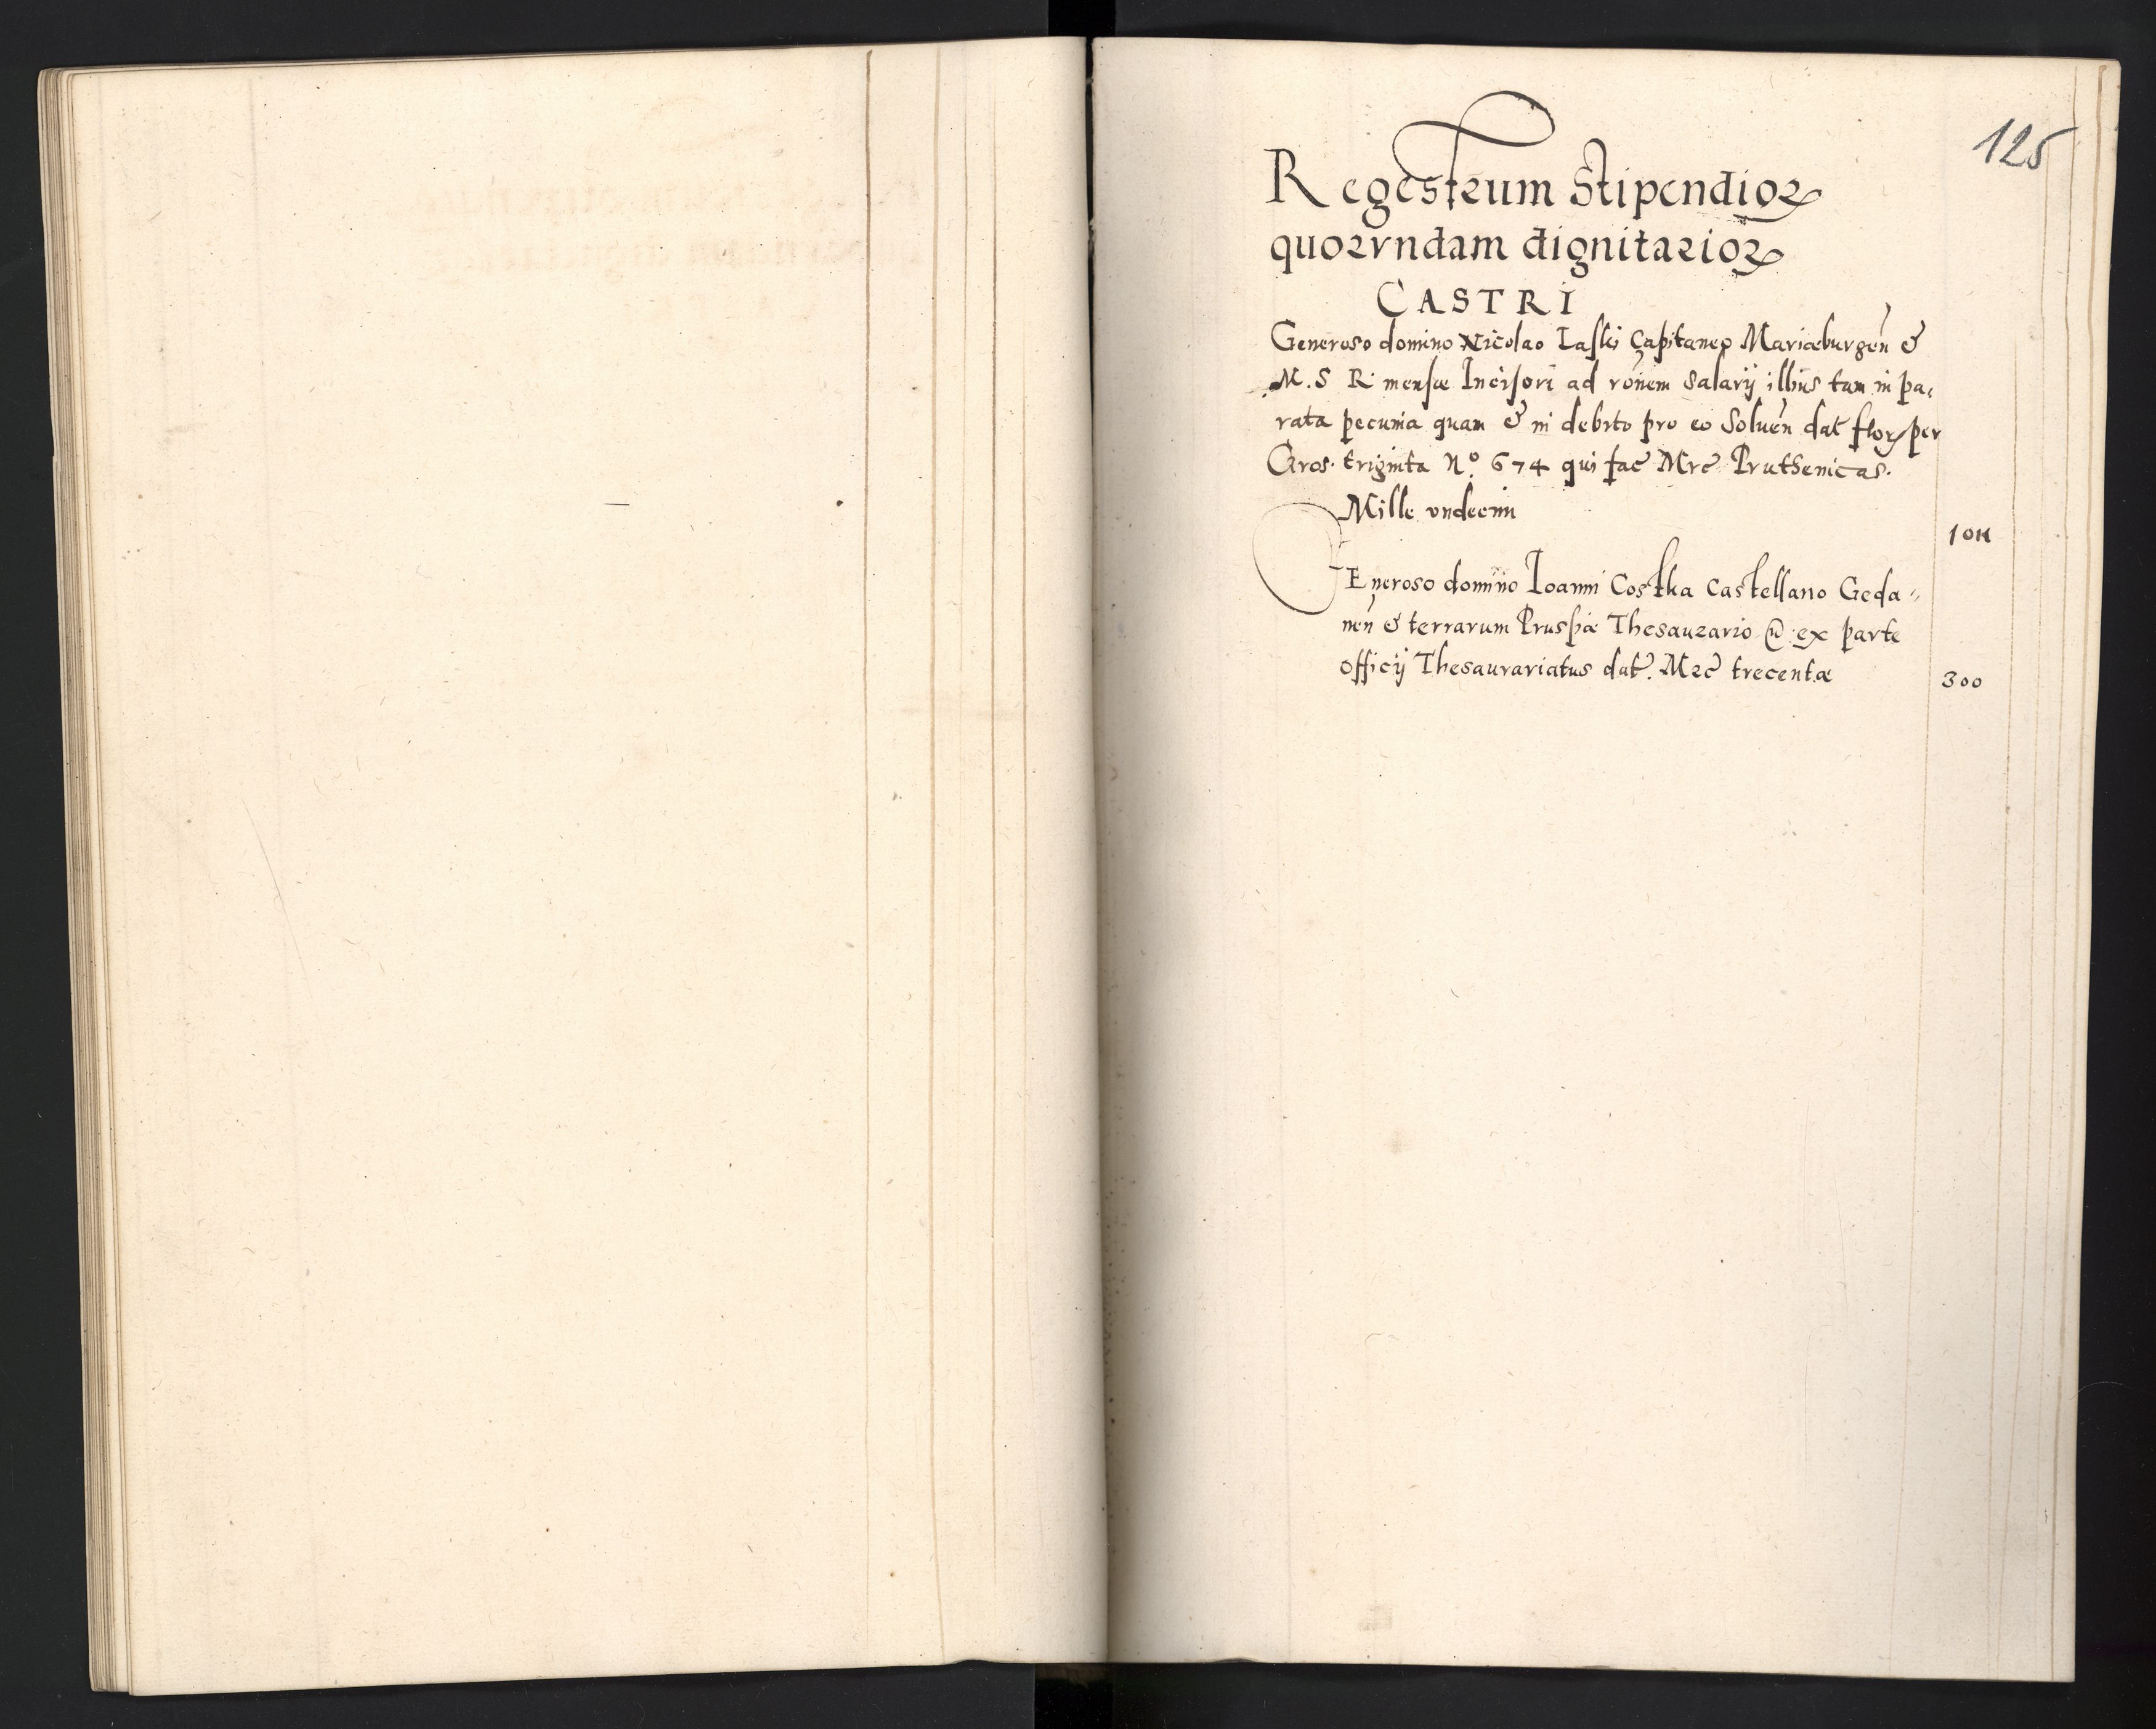 125
Regestrum Stipendioꝝ
quorvndam dignitarioꝝ
CASTRI
Generoso domino Nicolao Laski Capitaneo Mariæburgen̄ &
M. S R mensæ Incisori ad rōnem salarij illius tam in pa,
rata pecunia quam & in debito pro eo Soluen̄ dat̄ floꝝ per
Gros. triginta N.º 674 qui fac̄ Mrc̄ Prutsenicas.
Mille vndecim
1011
GEneroso domino Ioanni Costka Castellano Geda=
nen̄ & terrarum Prussiæ Thesaurario ex parte
officij Thesaurariatus dat̄. Mrc̄ trecentæ
300